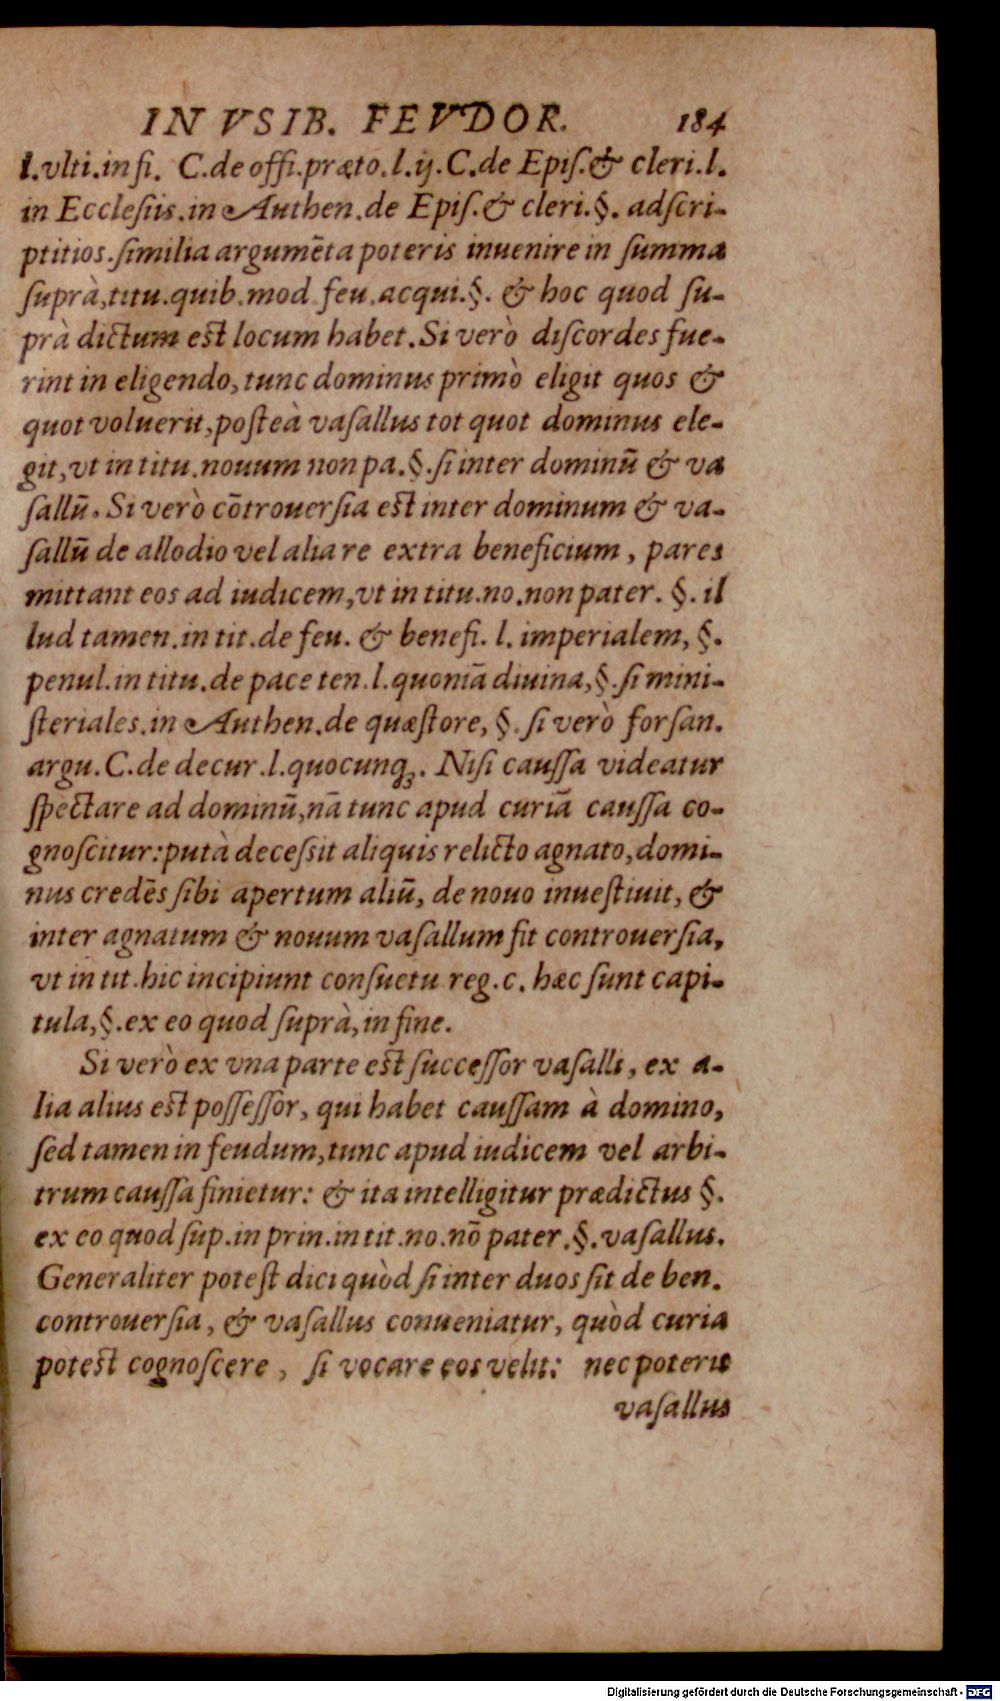 IN VSIB. FEVDOR. 184
l.vlti.in fi. C.de offi.præto.l.ij.C.de Epiſ.& cleri.l.
in Eccleſiis.in Authen.de Epiſ.& cleri.§. adſcri-
ptitios.ſimilia argumēta poteris inuenire in ſumma
ſuprà,titu.quib.mod feu.acqui.§. & hoc quod ſu-
prà dictum eſt locum habet.Si verò diſcordes fue-
rint in eligendo,tunc dominus primò eligit quos &
quot voluerit,poſteà vaſallus tot quot dominus ele-
git,vt in titu.nouum non pa.§.ſi inter dominū & va
ſallū. Si verò cōtrouerſia eſt inter dominum & va-
ſallū de allodio vel alia re extra beneficium, pares
mittant eos ad iudicem,vt in titu.no.non pater. §. il
lud tamen.in tit.de feu. & benefi. l. imperialem, §.
penul.in titu.de pace ten.l.quoniā diuina,§.ſi mini-
ſteriales.in Authen.de quæſtore, §. ſi verò forſan.
argu.C.de decur.l.quocunqꝫ. Niſi cauſſa videatur
ſpectare ad dominū,nā tunc apud curiā cauſſa co-
gnoſcitur:putà deceſsit aliquis relicto agnato,domi-
nus credēs ſibi apertum aliū, de nouo inueſtiuit, &
inter agnatum & nouum vaſallum fit controuerſia,
vt in tit.hic incipiunt conſuetu reg.c. hæc ſunt capi-
tula,§.ex eo quod ſuprà,in fine.
Si verò ex vna parte eſt ſucceſſor vaſalli, ex a-
lia alius eſt poſſeſſor, qui habet cauſſam à domino,
ſed tamen in feudum,tunc apud iudicem vel arbi-
trum cauſſa finietur: & ita intelligitur prædictus §.
ex eo quod ſup.in prin.in tit.no.nō pater.§.vaſallus.
Generaliter poteſt dici quòd ſi inter duos ſit de ben.
controuerſia, & vaſallus conueniatur, quòd curia
poteſt cognoſcere, ſi vocare eos velit: nec poterit
vaſallus
Digitalisierung gefördert durch die Deutsche Forschungsgemeinschaft - DFG